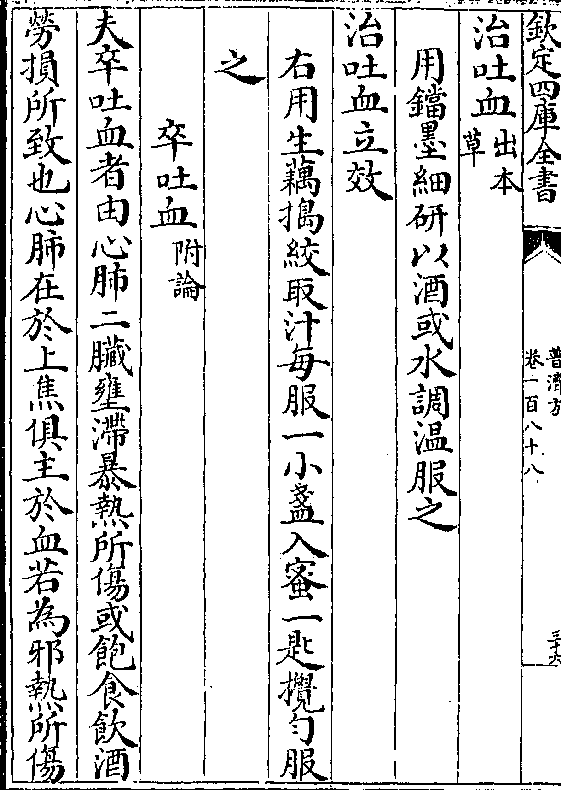 欽定四庫全書
普濟方
卷一百八十八
三十六
治吐血出本草
用鐺墨細研以酒或水調温服之
治吐血立效
右用生藕搗絞取汁每服一小盞入蜜一匙攪勻服
之
卒吐血附論
夫卒吐血者由心肺二臟壅滯暴熱所傷或飽食飲酒
勞損所致也心肺在於上焦俱主於血若為邪熱所傷